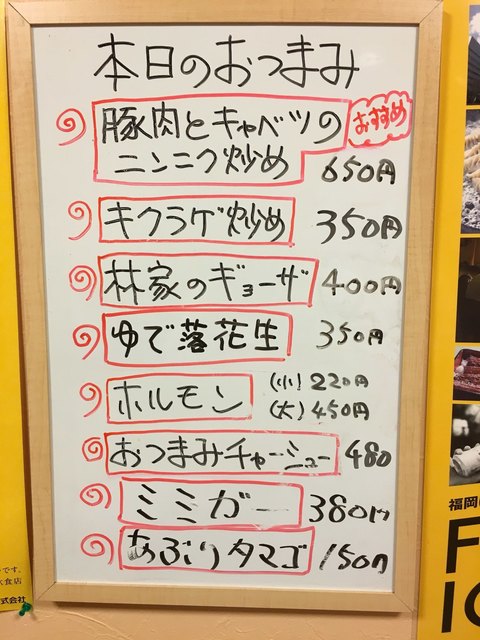 本日のおつまみ
豚肉とキャベツの おすすめ
ニンニク炒め 650円
キクラゲ炒め 350円
林家のギョーザ 400円
ゆで落花生 350円
ホルモン (小) 220円
(大) 450円
おつまみチャーシュー 480
ミミガー 380円
あぶりタマゴ 150円
福岡
です。
式会社